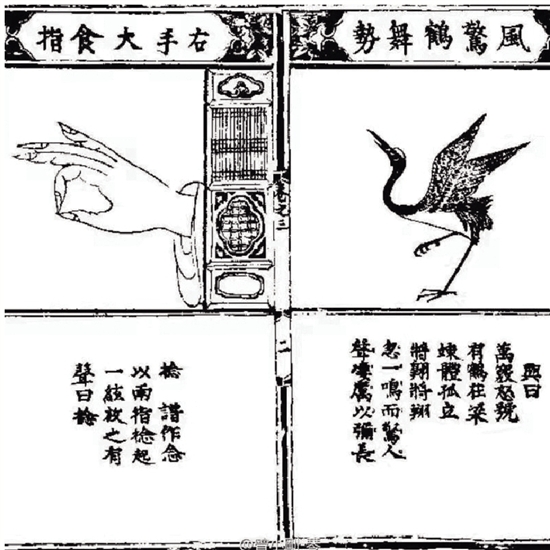 風驚鶴舞勢
興曰
萬竅怒號
有鶴在梁
竦體孤立
將翱將翔
忽一鳴而驚人
聲淒厲以彌長
右手大食指
捻 譜作念
以兩指捻起
一絃放之有
聲曰捻